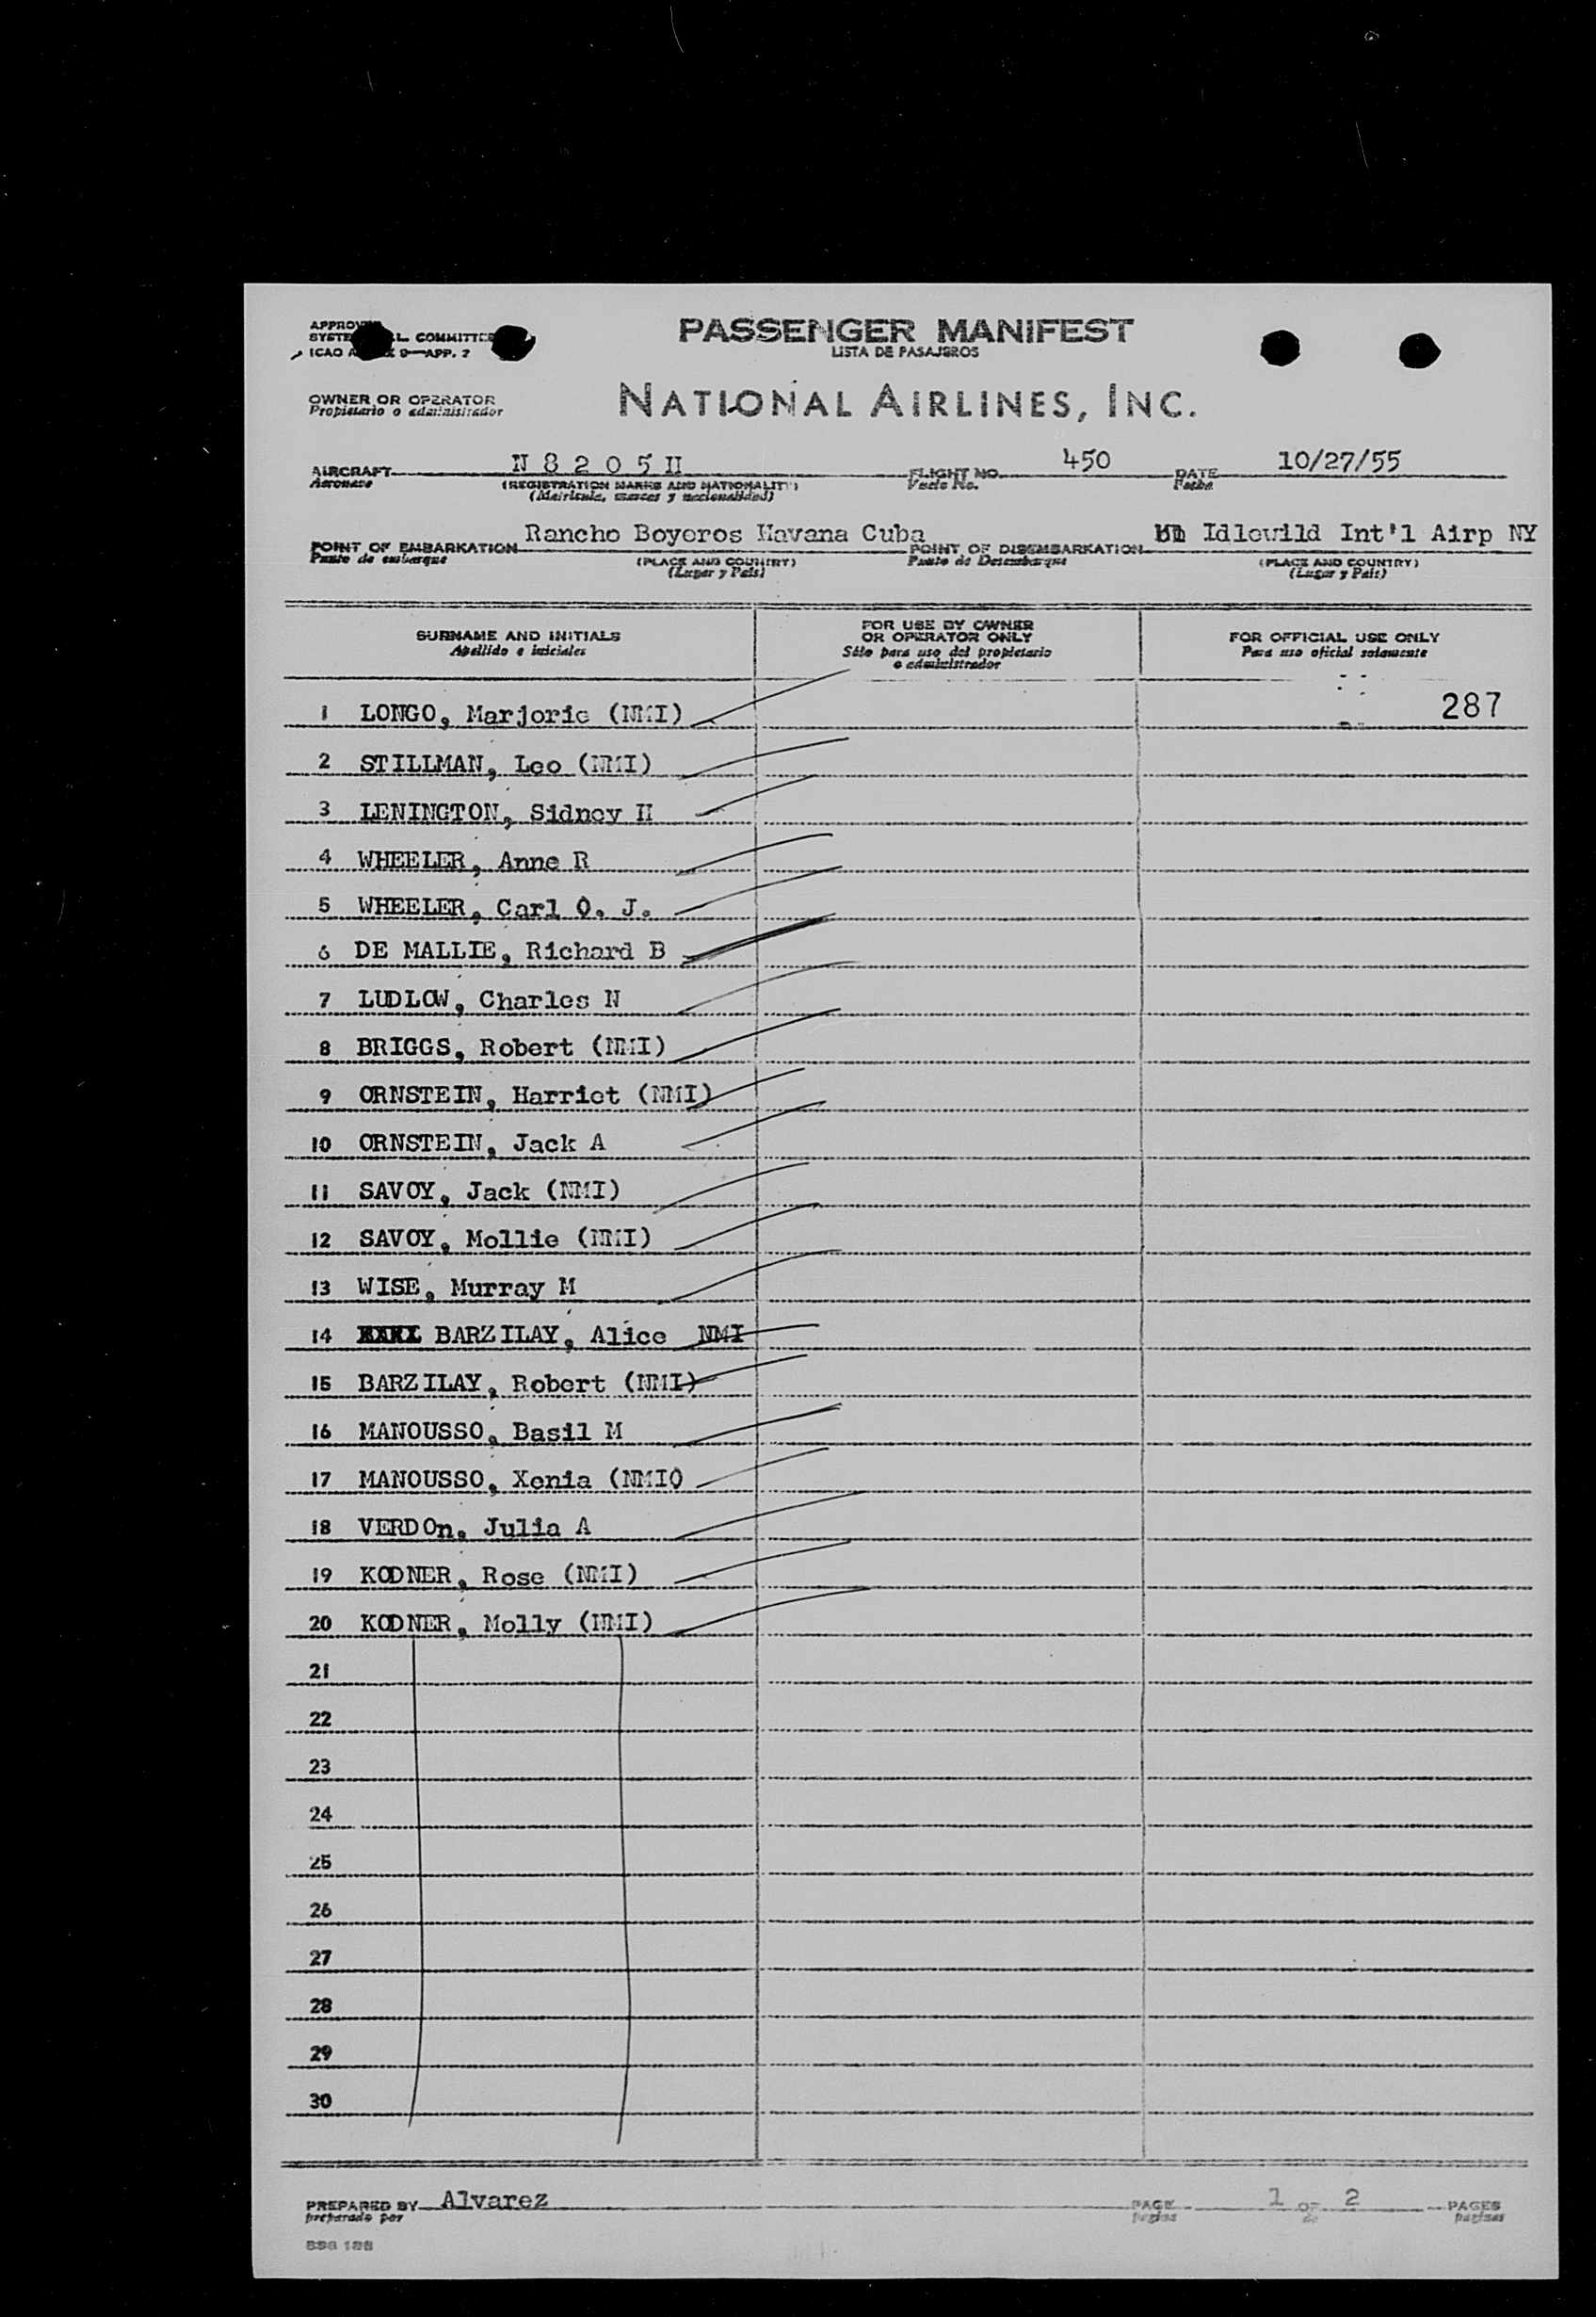 PASSENGER MANIFEST
LISTA DE PASAJEROS
ICAO 9—APP. 7
OWNER OR OPERATOR
Propietario o administrador
NATIONAL AIRLINES, INC.
AIRCRAFT N 8 2 0 5 H FLIGHT NO. 450 DATE 10/27/55
Aeronave (REGISTRATION MARKS AND NATIONALITY) Vuelo No. Fecha
(Matricula, marcas y nacionalidad)
POINT OF EMBARKATION Rancho Boyeros Havana Cuba POINT OF DISEMBARKATION Idlewild Int'l Airp NY
Punto de embarque (PLACE AND COUNTRY) Punto de Desembarque (PLACE AND COUNTRY)
(Lugar y Pais) (Lugar y Pais)
SURNAME AND INITIALS
Apellido e iniciales
FOR USE BY OWNER
OR OPERATOR ONLY
Sólo para uso del propietario
o administrador
FOR OFFICIAL USE ONLY
Para uso oficial solamente
1 LONGO, Marjorie (NMI) 287
2 STILLMAN, Leo (NMI)
3 LENINGTON, Sidney H
4 WHEELER, Anne R
5 WHEELER, Carl O. J.
6 DE MALLIE, Richard B
7 LUDLOW, Charles N
8 BRIGGS, Robert (NMI)
9 ORNSTEIN, Harriet (NMI)
10 ORNSTEIN, Jack A
11 SAVOY, Jack (NMI)
12 SAVOY, Mollie (NMI)
13 WISE, Murray M
14 BARZILAY, Alice NMI
15 BARZILAY, Robert (NMI)
16 MANOUSSO, Basil M
17 MANOUSSO, Xenia (NMIO
18 VERDOn, Julia A
19 KODNER, Rose (NMI)
20 KODNER, Molly (NMI)
21
22
23
24
25
26
27
28
29
30
PREPARED BY Alvarez PAGE 1 OF 2 PAGES
preparado por pagina de paginas